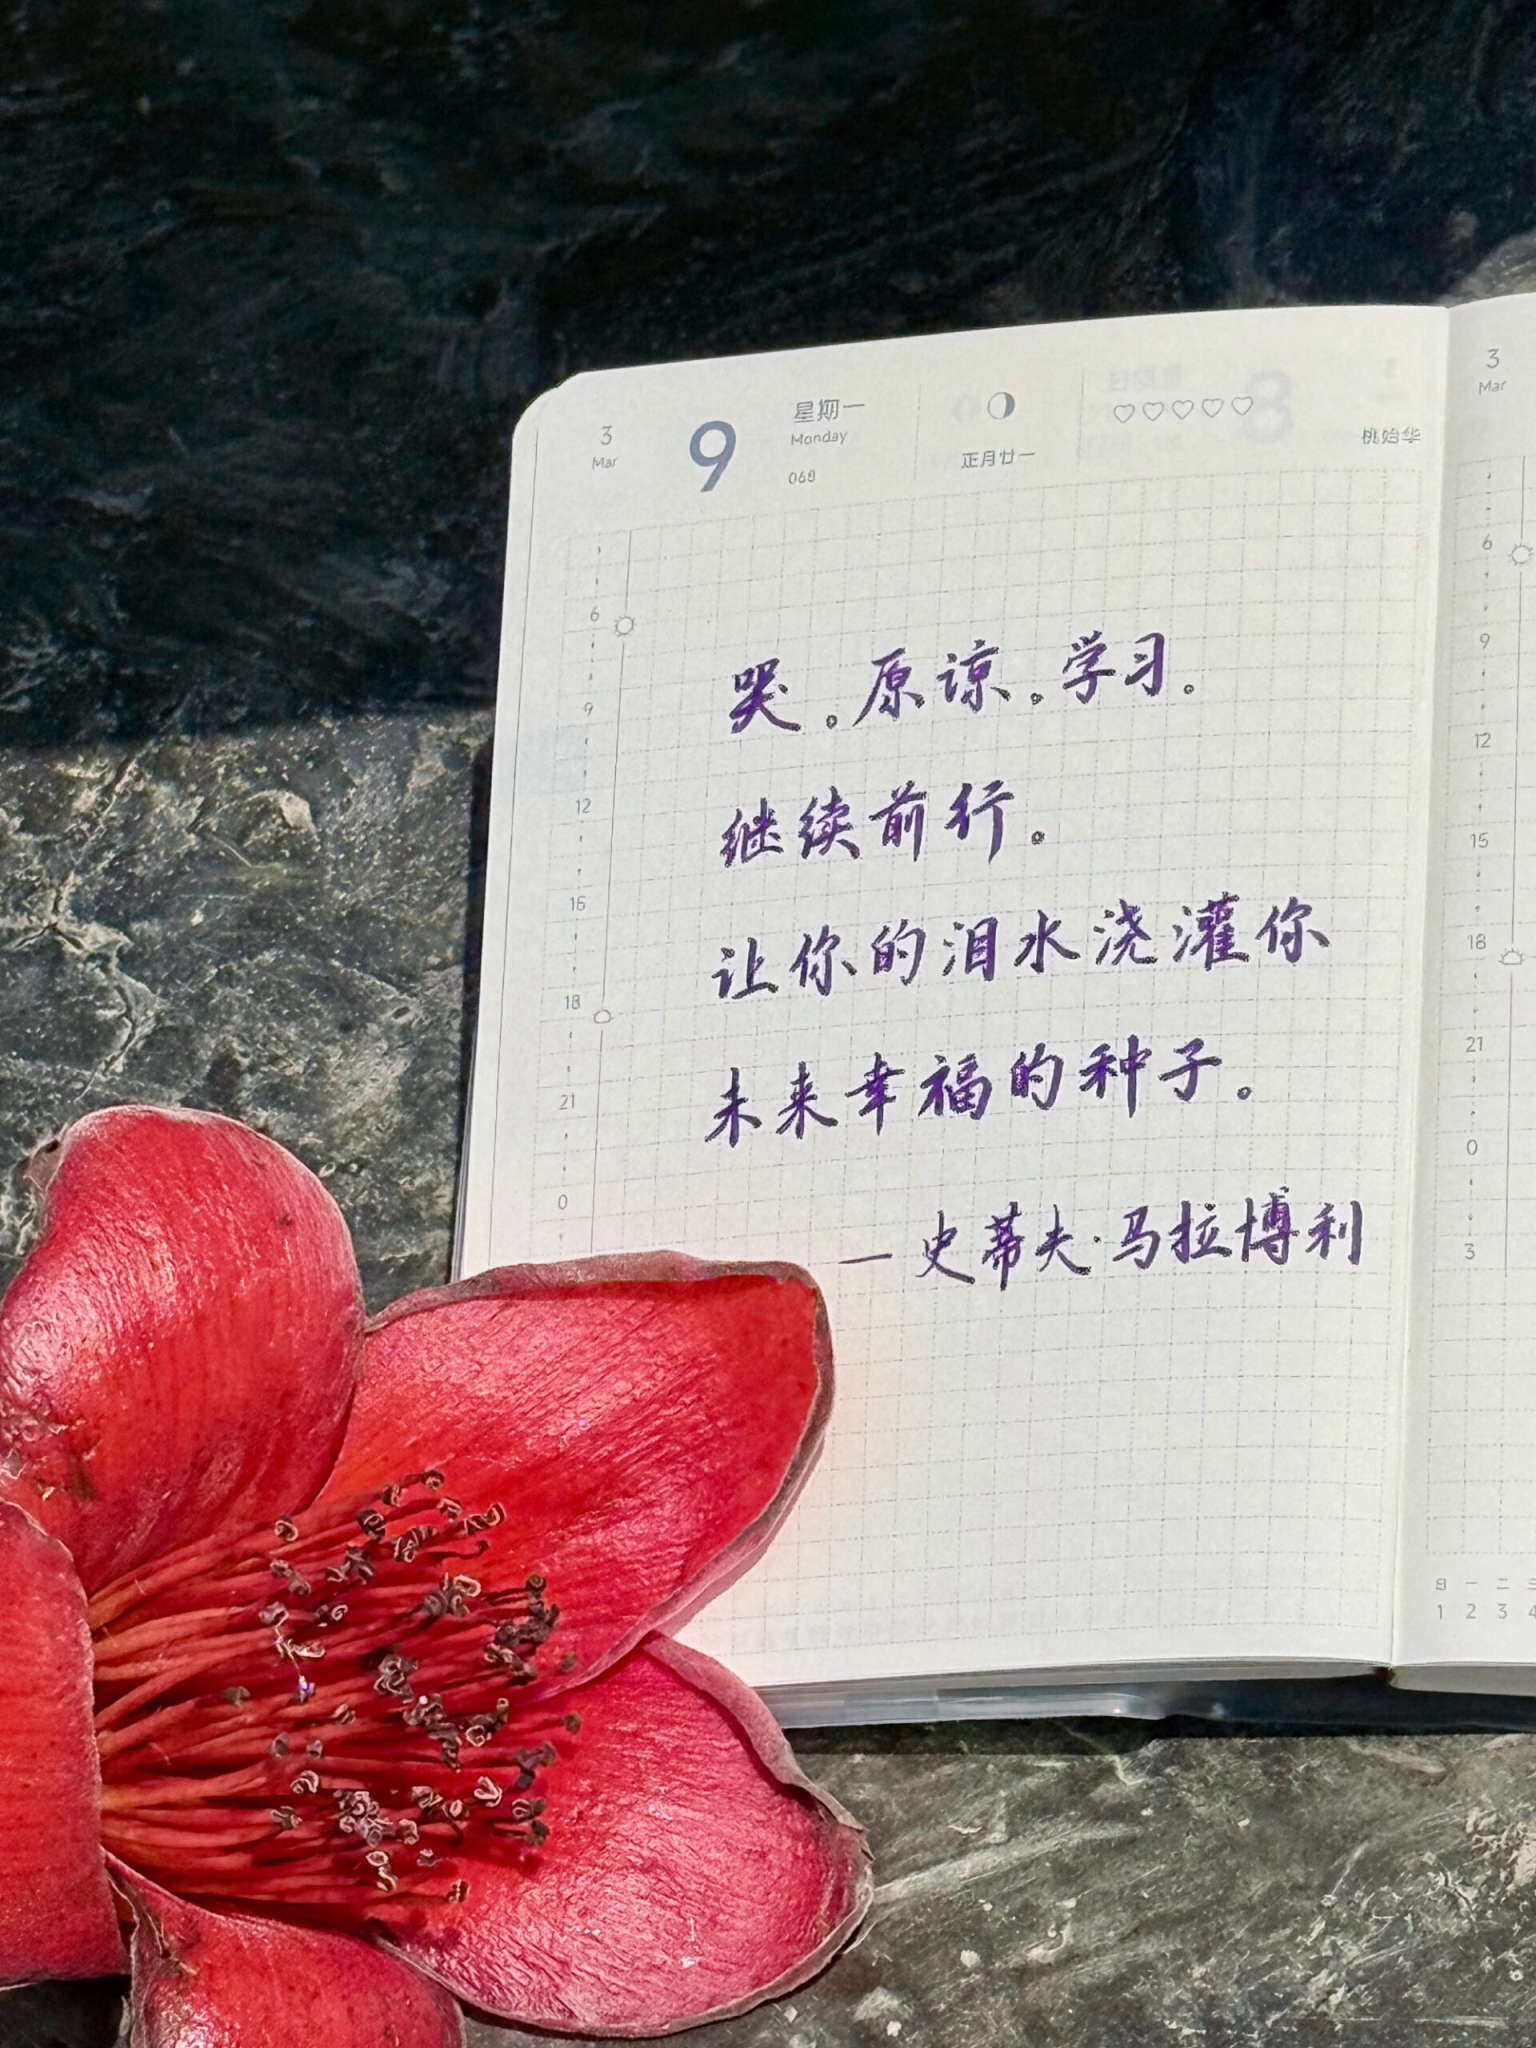 3
Mar
9
星期一
Monday
068
正月廿一
桃始华
6
9
12
15
18
21
0
哭。原谅。学习。
继续前行。
让你的泪水浇灌你
未来幸福的种子。
—史蒂夫·马拉博利
3
Mar
6
9
12
15
18
21
0
3
日 一 二 三
1 2 3 4